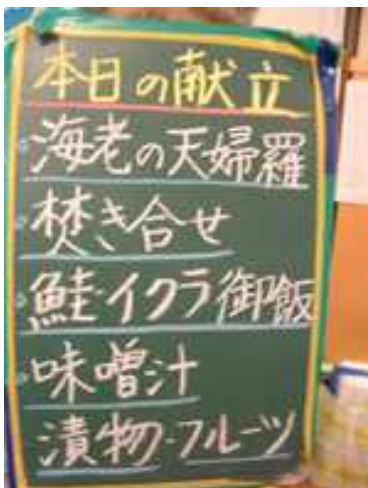 本日の献立
海老の天婦羅
焚き合せ
鮭・イクラ御飯
味噌汁
漬物・フルーツ